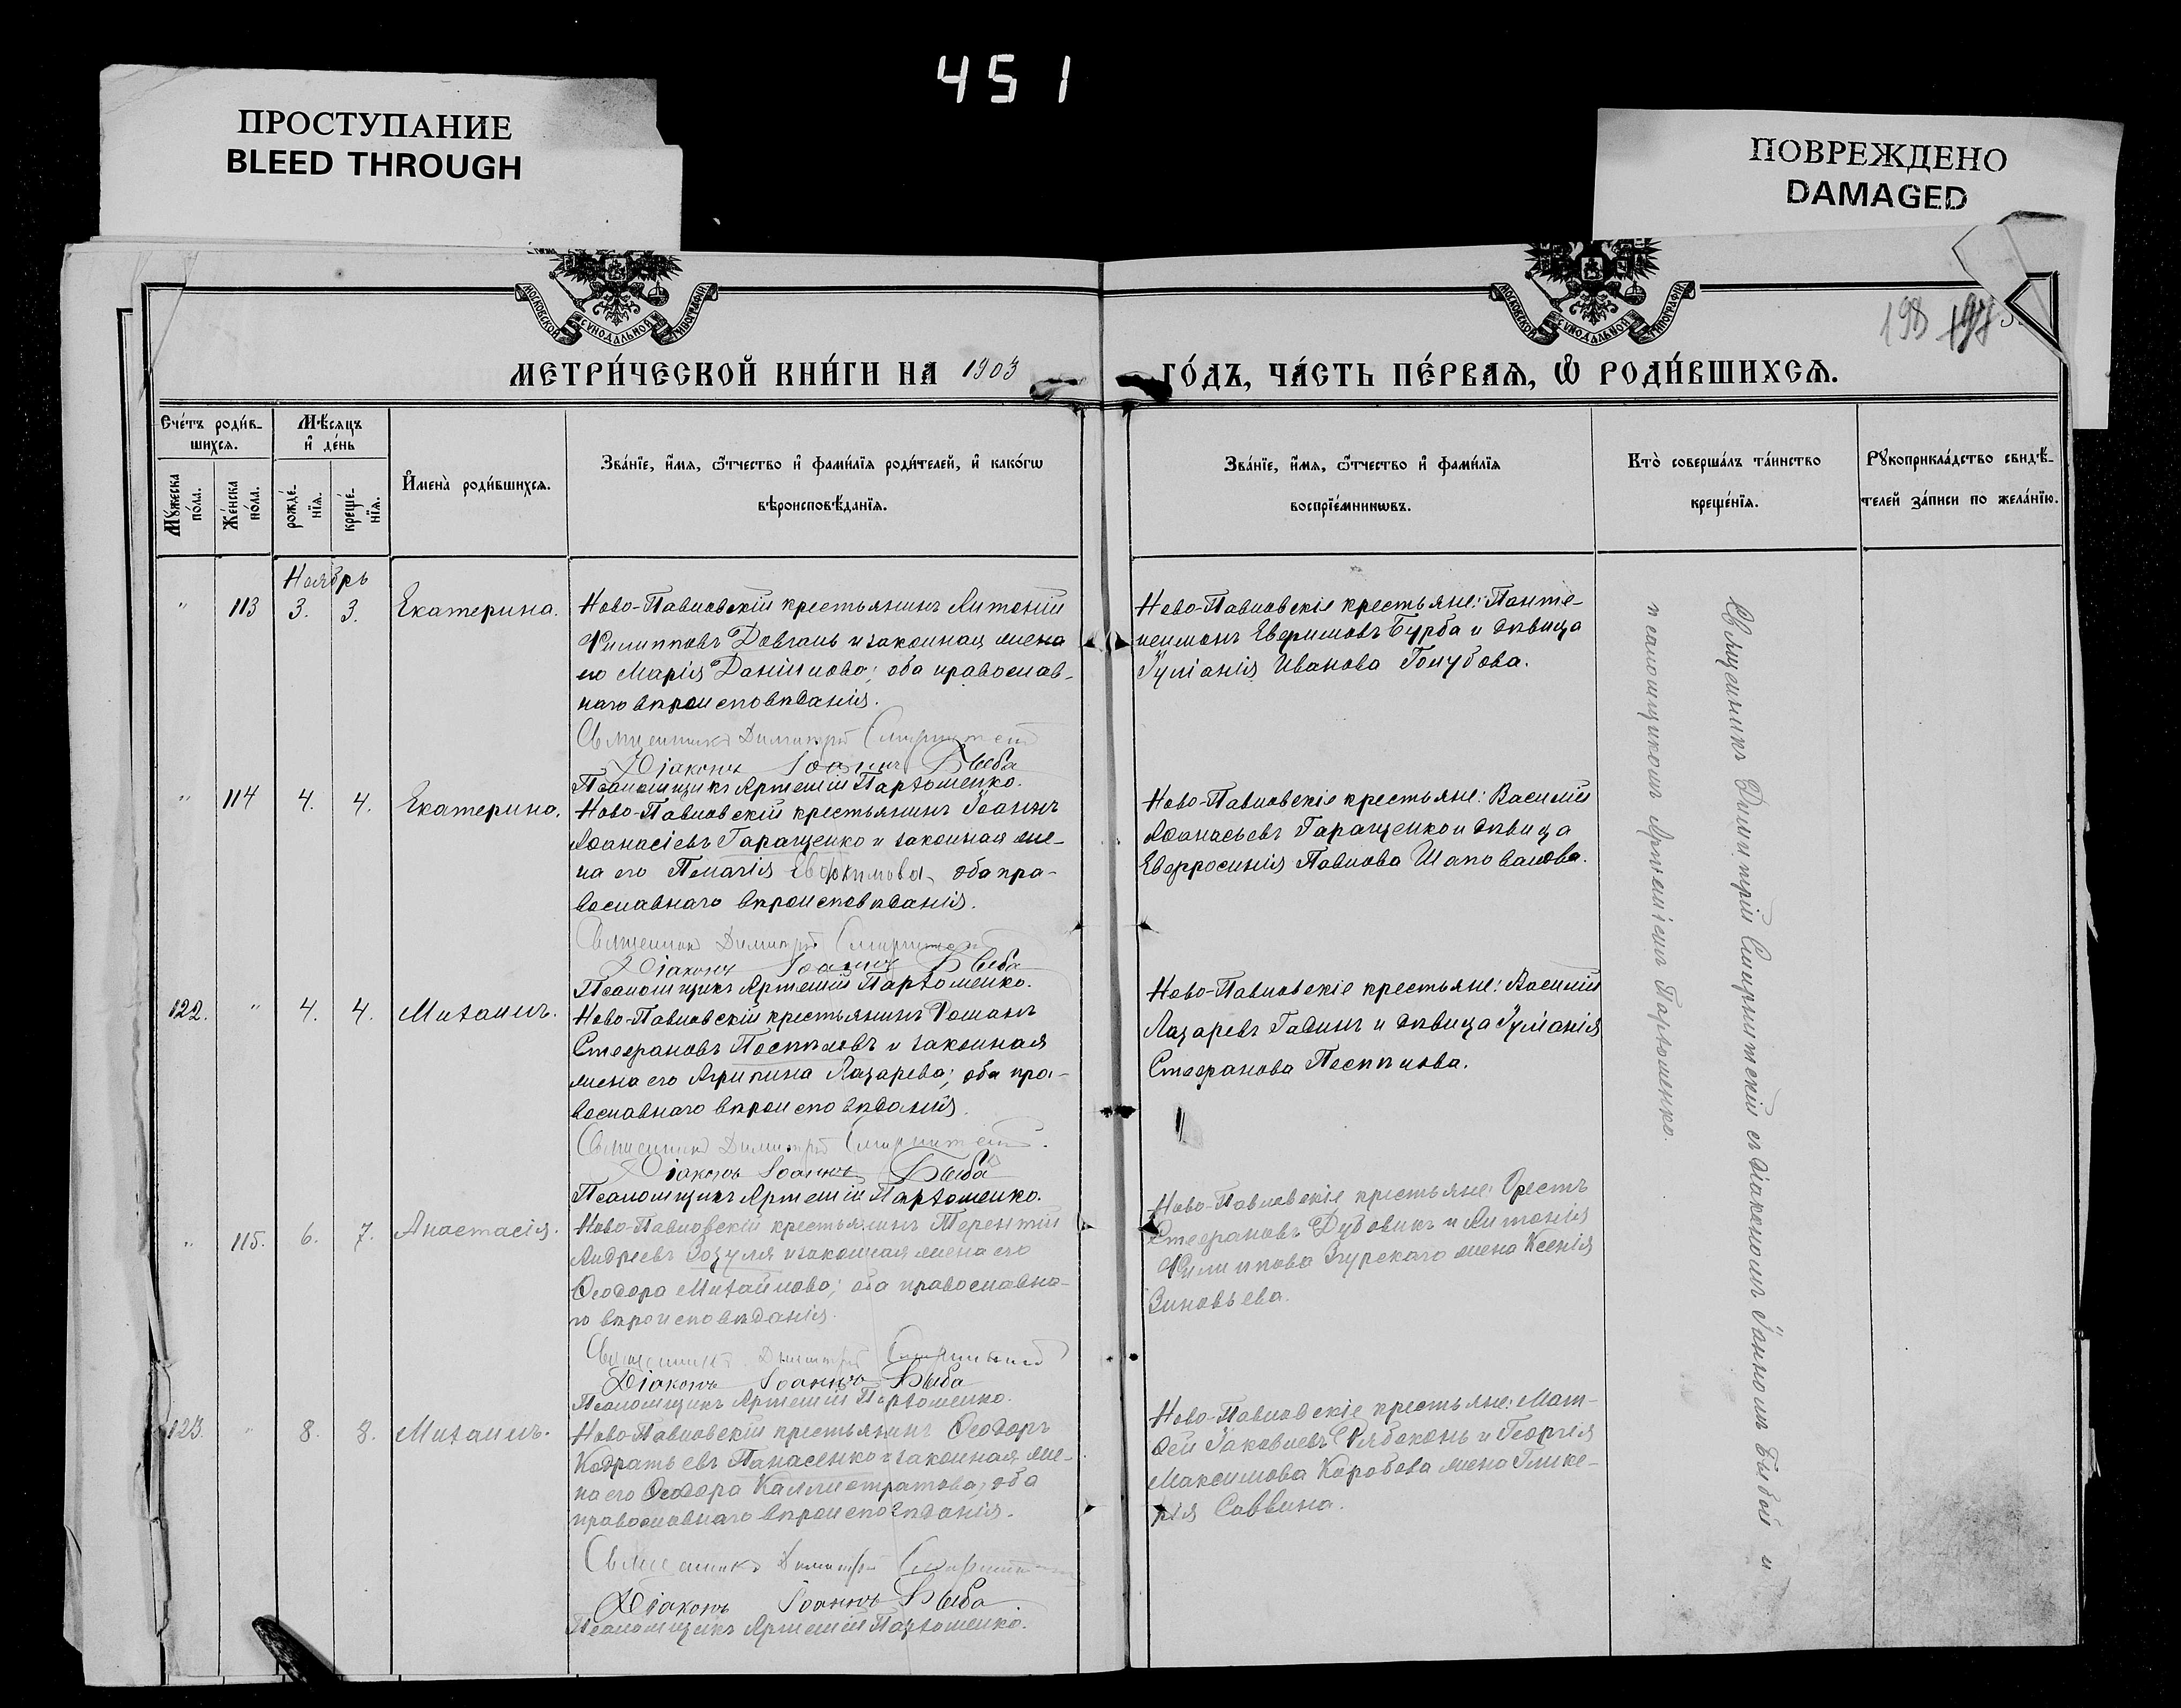 451
ПРОСТУПАНИЕ
BLEED THROUGH
ПОВРЕЖДЕНО
DAMAGED
МОСКОВСКОЙ СѴНОДАЛЬНОЙ ТИПОГРАФІИ
МОСКОВСКОЙ СѴНОДАЛЬНОЙ ТИПОГРАФІИ
198 197
МЕТРИ́ЧЕСКОЙ КНИ́ГИ НА 1903 ГО́ДЪ, ЧА́СТЬ ПЕ́РВАѦ, Ѡ҆ РОДИ́ВШИХСѦ.
Сче́тъ роди́в-
шихсѧ.
Мѣ́сѧцъ
и҆ де́нь
Мꙋ́жеска
по́ла.
Же́нска
по́ла.
рожде́-
нїѧ.
креще́-
нїѧ.
И҆мена̀ роди́вшихсѧ.
Зва́нїе, и҆́мѧ, ѻ҆́тчество и҆ фами́лїѧ роди́телей, и҆ како́гѡ
вѣроисповѣ́данїѧ.
Зва́нїе, и҆́мѧ, ѻ҆́тчество и҆ фами́лїѧ
воспрїе́мникѡвъ.
Кто̀ соверша́лъ та́инство
креще́нїѧ.
Рꙋкоприкла́дство свидѣ́-
телей за́писи по жела́нїю.
Ноябрь
" 113 3. 3. Екатерина.
Ново-Павловскій крестьянинъ Антоній
Филипповъ Довгаль и законная жена
его Марія Даніилова; оба православ-
наго вѣроисповѣданія.
Священникъ Димитрій
Діаконъ Іоаннъ Быба
Псаломщикъ Артемій Пархоменко.
Ново-Павловскіе крестьяне: Панте-
леимонъ Евфимовъ Бурба и дѣвица
Іуліанія Иванова Голубова.
" 114 4. 4. Екатерина.
Ново-Павловскій крестьянинъ Іоаннъ
Аѳанасіевъ Гаращенко и законная же-
на его Пелагія Евфимова, оба пра-
вославнаго вѣроисповѣданія.
Священникъ Димитрій
Діаконъ Іоаннъ Быба
Псаломщикъ Артемій Пархоменко.
Ново-Павловскіе крестьяне: Василій
Аѳанасьевъ Гаращенко и дѣвица
Евфросинія Павлова Шаповалова.
122. " 4. 4. Михаилъ.
Ново-Павловскій крестьянинъ Романъ
Стефановъ Поспѣловъ и законная
жена его Агрипина Лазарева; оба пра-
вославнаго вѣроисповѣданія.
Священникъ Димитрій
Діаконъ Іоаннъ Быба
Псаломщикъ Артемій Пархоменко.
Ново-Павловскіе крестьяне: Василій
Лазаревъ и дѣвица Іуліанія
Стефанова Поспѣлова.
" 115. 6. 7. Анастасія.
Ново-Павловскій крестьянинъ Терентій
Андреевъ Зозуля и законная жена его
Ѳеодора Михайлова; оба православна-
го вѣроисповѣданія.
Священникъ Димитрій
Діаконъ Іоаннъ Быба
Псаломщикъ Артемій Пархоменко.
Ново-Павловскіе крестьяне: Орестъ
Стефановъ Дубовикъ и Антонія
Филиппова Згурскаго жена Ксенія
Зиновьева.
123. " 8. 8. Михаилъ.
Ново-Павловскій крестьянинъ Ѳеодоръ
Кодратьевъ Панасенко и законная же-
на его Ѳеодора Каллистратова; оба
православнаго вѣроисповѣданія.
Священникъ Димитрій
Діаконъ Іоаннъ Быба
Псаломщикъ Артемій Пархоменко.
Ново-Павловскіе крестьяне: Мат-
ѳей Іаковлевъ Рябоконь и Георгія
Максимова Коробова жена Глике-
рія Саввина.
Священникъ Димитрій съ діакономъ Іоанномъ Быбой и
псаломщикомъ Артеміемъ Пархоменко.